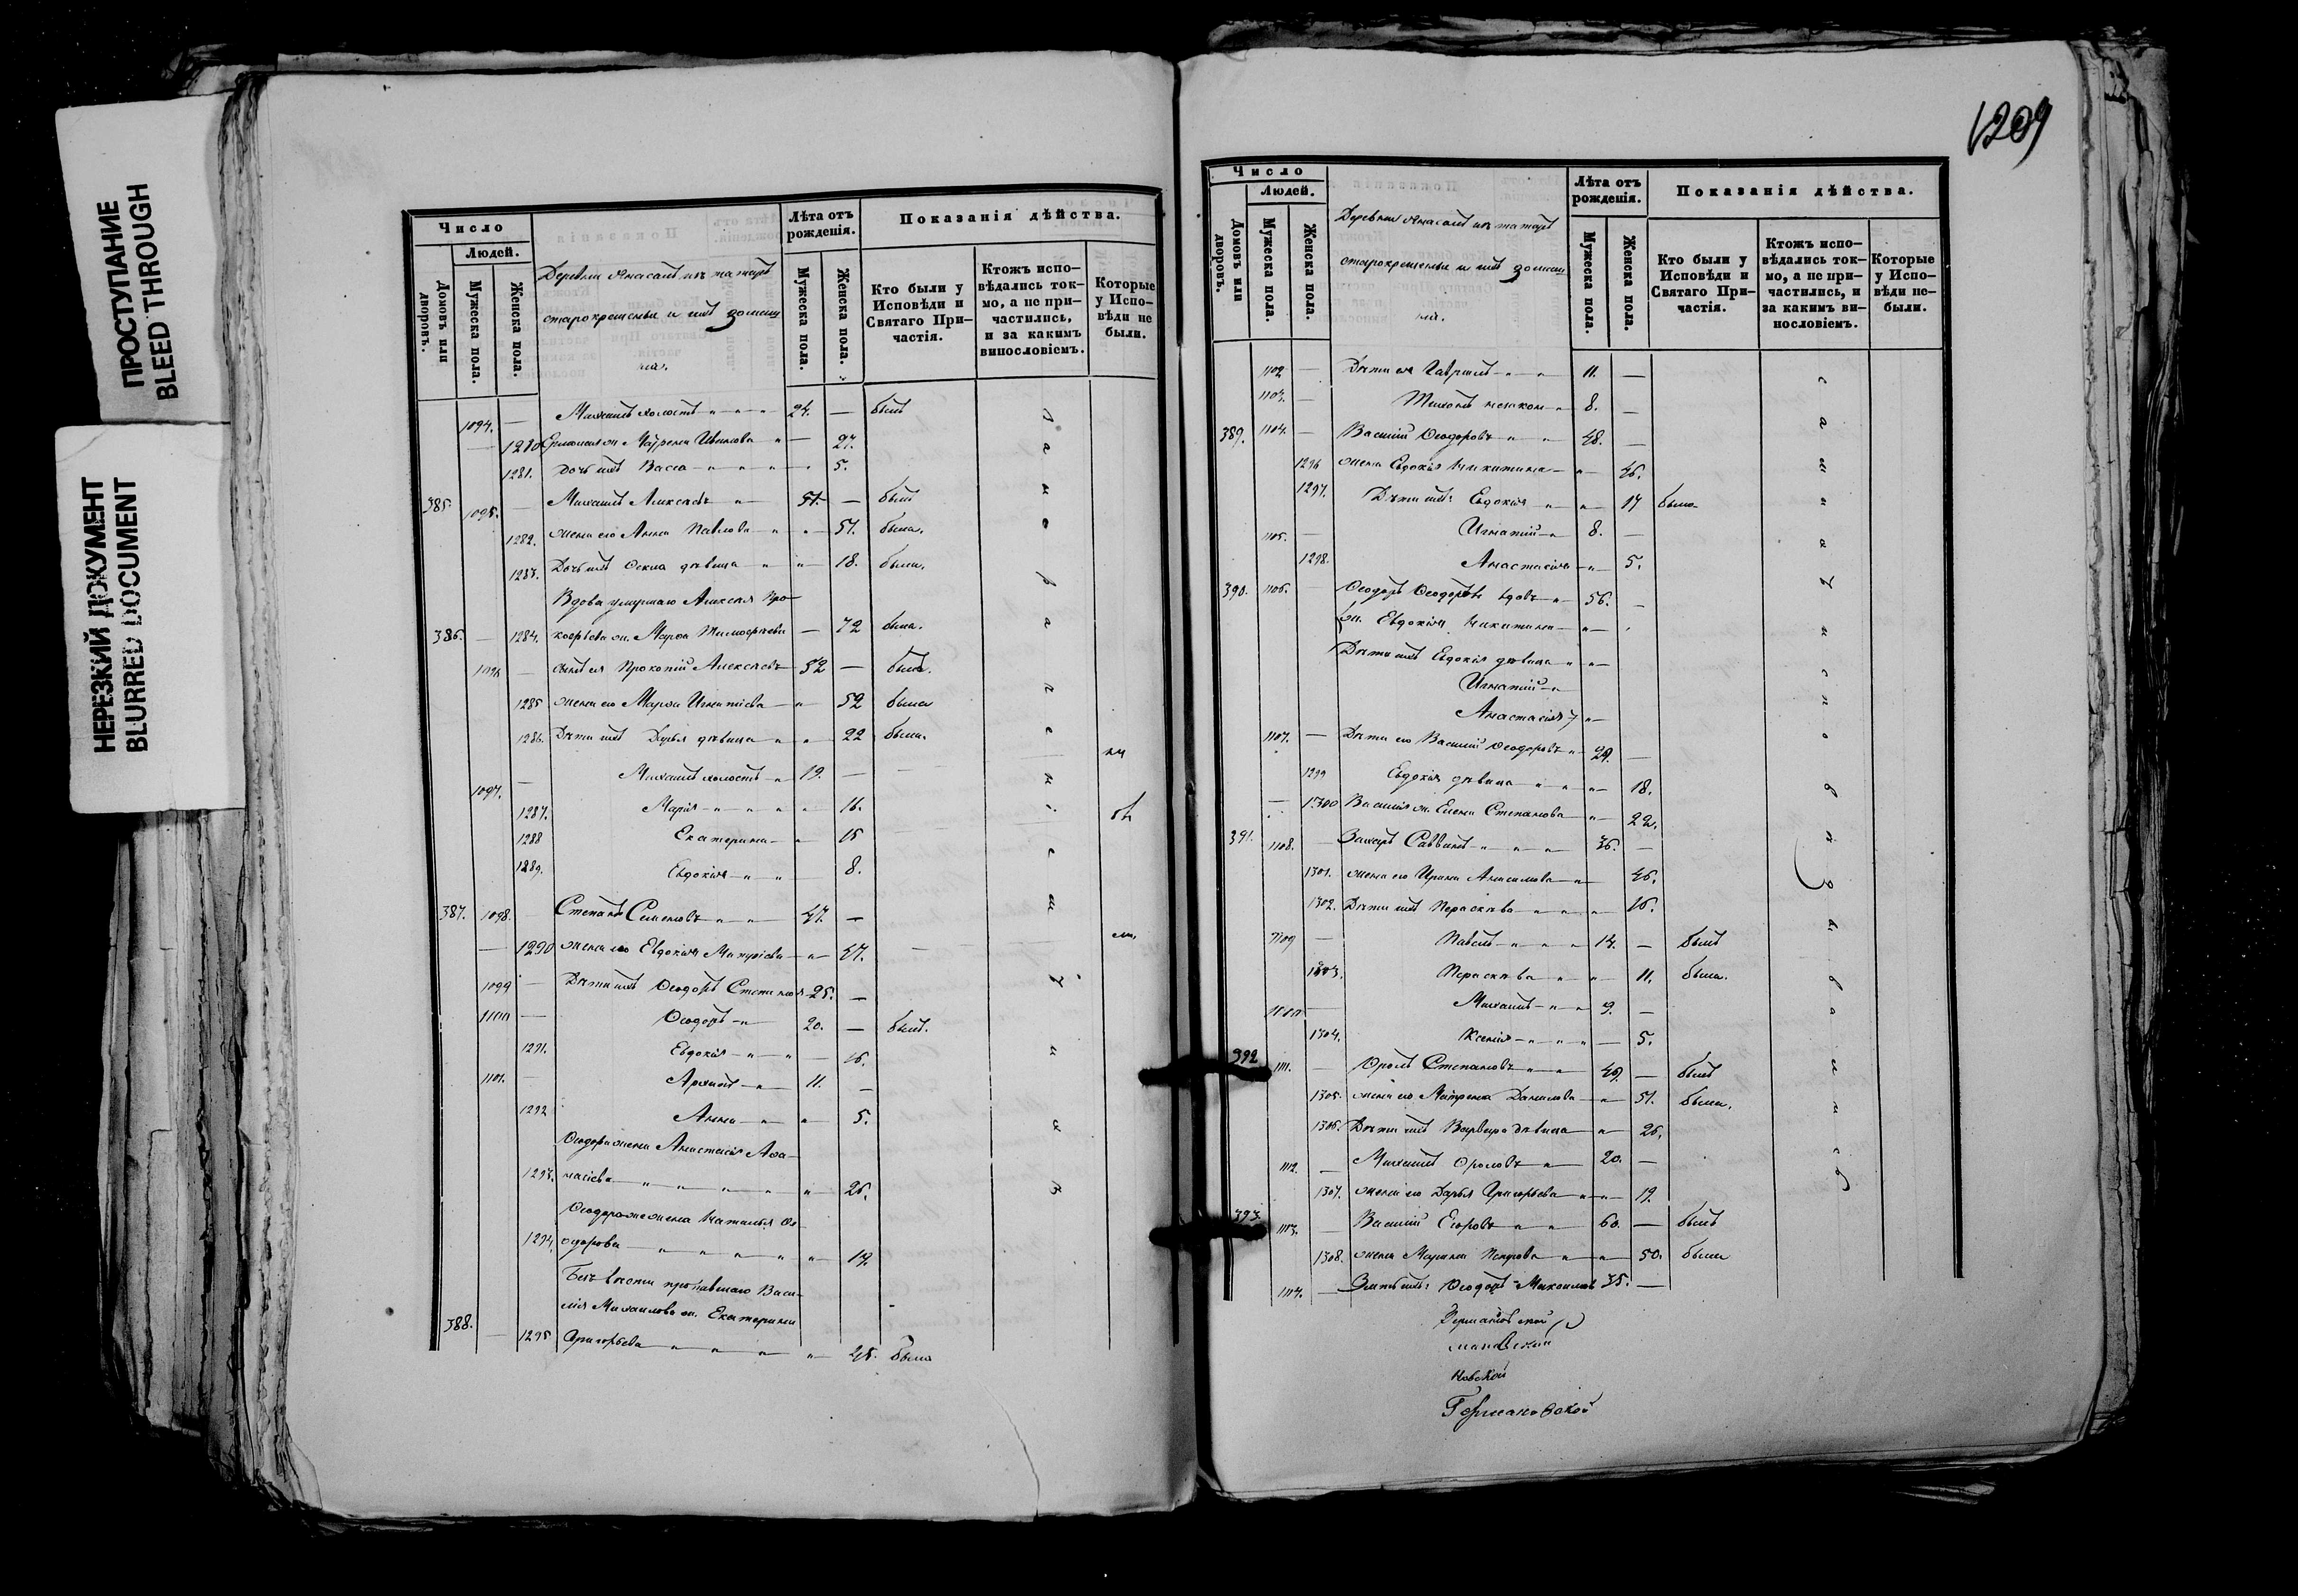 ПРОСТУПАНИЕ
BLEED THROUGH
НЕРЕЗКИЙ ДОКУМЕНТ
BLURRED DOCUMENT
Число
Людей.
Домовъ или дворовъ.
Мужеска пола.
Женска пола.
Деревни изъ татаръ
старокрещены и ихъ домаш
нiя.
Лѣта отъ рожденія.
Мужеска пола.
Женска пола.
Показанія дѣйства.
Кто были у Исповѣди и Святаго При-частія.
Ктожъ испо-вѣдались ток-мо, а не при-частились, и за какимъ винословіемъ.
Которые у Испо-вѣди не были.
1094. — Михаилъ холостъ 24. — былъ
1280 ж. Матрена Иванова 27.
1281. Дочь ихъ Васса 5.
385. 1095. — Михаилъ Алексѣевъ 51. — былъ
1282. жена его Анна Павлова 51. была.
1283. Дочь ихъ дѣвица 18. была.
Вдова умершаго Алексѣя Про-
386. — 1284. кофьева ж. Марѳа Тимофѣева — 72 была.
1096 — сынъ ея Прокопій Алексѣевъ 52 — былъ.
1285 жена его Марѳа Игнатіева 52 была
1286. Дѣти ихъ Дарья дѣвица 22 была.
1097. — Михаилъ холостъ 19. —
1287. Марія 16.
1288 Екатерина 15
1289. Евдокія 8.
387. 1098. — Степанъ Семеновъ 47. —
— 1290 жена его Евдокія 47.
1099 — Дѣти ихъ Ѳеодоръ Степановъ 25. —
1100 — Ѳеодоръ 20. — былъ.
1291. Евдокія 16.
1101. — Архипъ 11. —
1292 Анна 5.
Ѳедора жена Анастасія Аѳа-
1293. насіева 26.
Ѳедора же жена Наталья Ѳе-
1294. одорова 19.
Безъ вѣсти пропавшаго Васи-
лія Михаилова ж. Екатерина
388. — 1295 Григорьева 25. была
1209
Число
Людей.
Домовъ или дворовъ.
Мужеска пола.
Женска пола.
Деревни изъ татаръ
старокрещены и ихъ домаш
нія.
Лѣта отъ рожденія.
Мужеска пола.
Женска пола.
Показанія дѣйства.
Кто были у Исповѣди и Святаго При-частія.
Ктожъ испо-вѣдались ток-мо, а не при-частились, и за какимъ ви-нословіемъ.
Которые у Испо-вѣди не-были.
1102 — Дѣти ея Гаврилъ 11. —
1103. — Тихонъ незакон 8. —
389. 1104. — Василій Ѳеодоровъ 48. —
1296 жена Евдокія Никитина 46.
1297. Дѣти ихъ: Евдокія 17 была
1105. — Игнатій 8. —
1298. Анастасія 5.
390. 1106. — Ѳеодоръ Ѳеодоровъ вдовъ 56. —
ж. Евдокія Никитина
Дѣти ихъ Евдокія дѣвица
Игнатій
Анастасія
1107. — Дѣти его Василій Ѳеодоровъ 29. —
1299 Евдокія дѣвица 18.
— 1300 Василія ж. Елена Степанова 22.
391. 1108. — Захаръ Саввинъ 36. —
1301. жена его Ирина Анисимова 46.
1302. Дѣти ихъ Параскѣва 16.
1109 — Павелъ 14. — былъ
1303. Параскѣва 11. была.
1110 — Михаилъ 9. —
1304. Ксенія 5.
392 1111. — Фролъ Степановъ 49. — былъ
1305. жена его Матрена Данилова 51. была.
1306. Дѣти ихъ Варвара дѣвица 26.
1112. — Михаилъ Фроловъ 20. —
1307. жена его Дарья Григорьева 19.
393. 1113. — Василій Егоровъ 60. — былъ
1308. жена Марина Петрова 50. была
1114. — Зять ихъ: Ѳеодоръ Михаиловъ 35. —
новской
Германовской